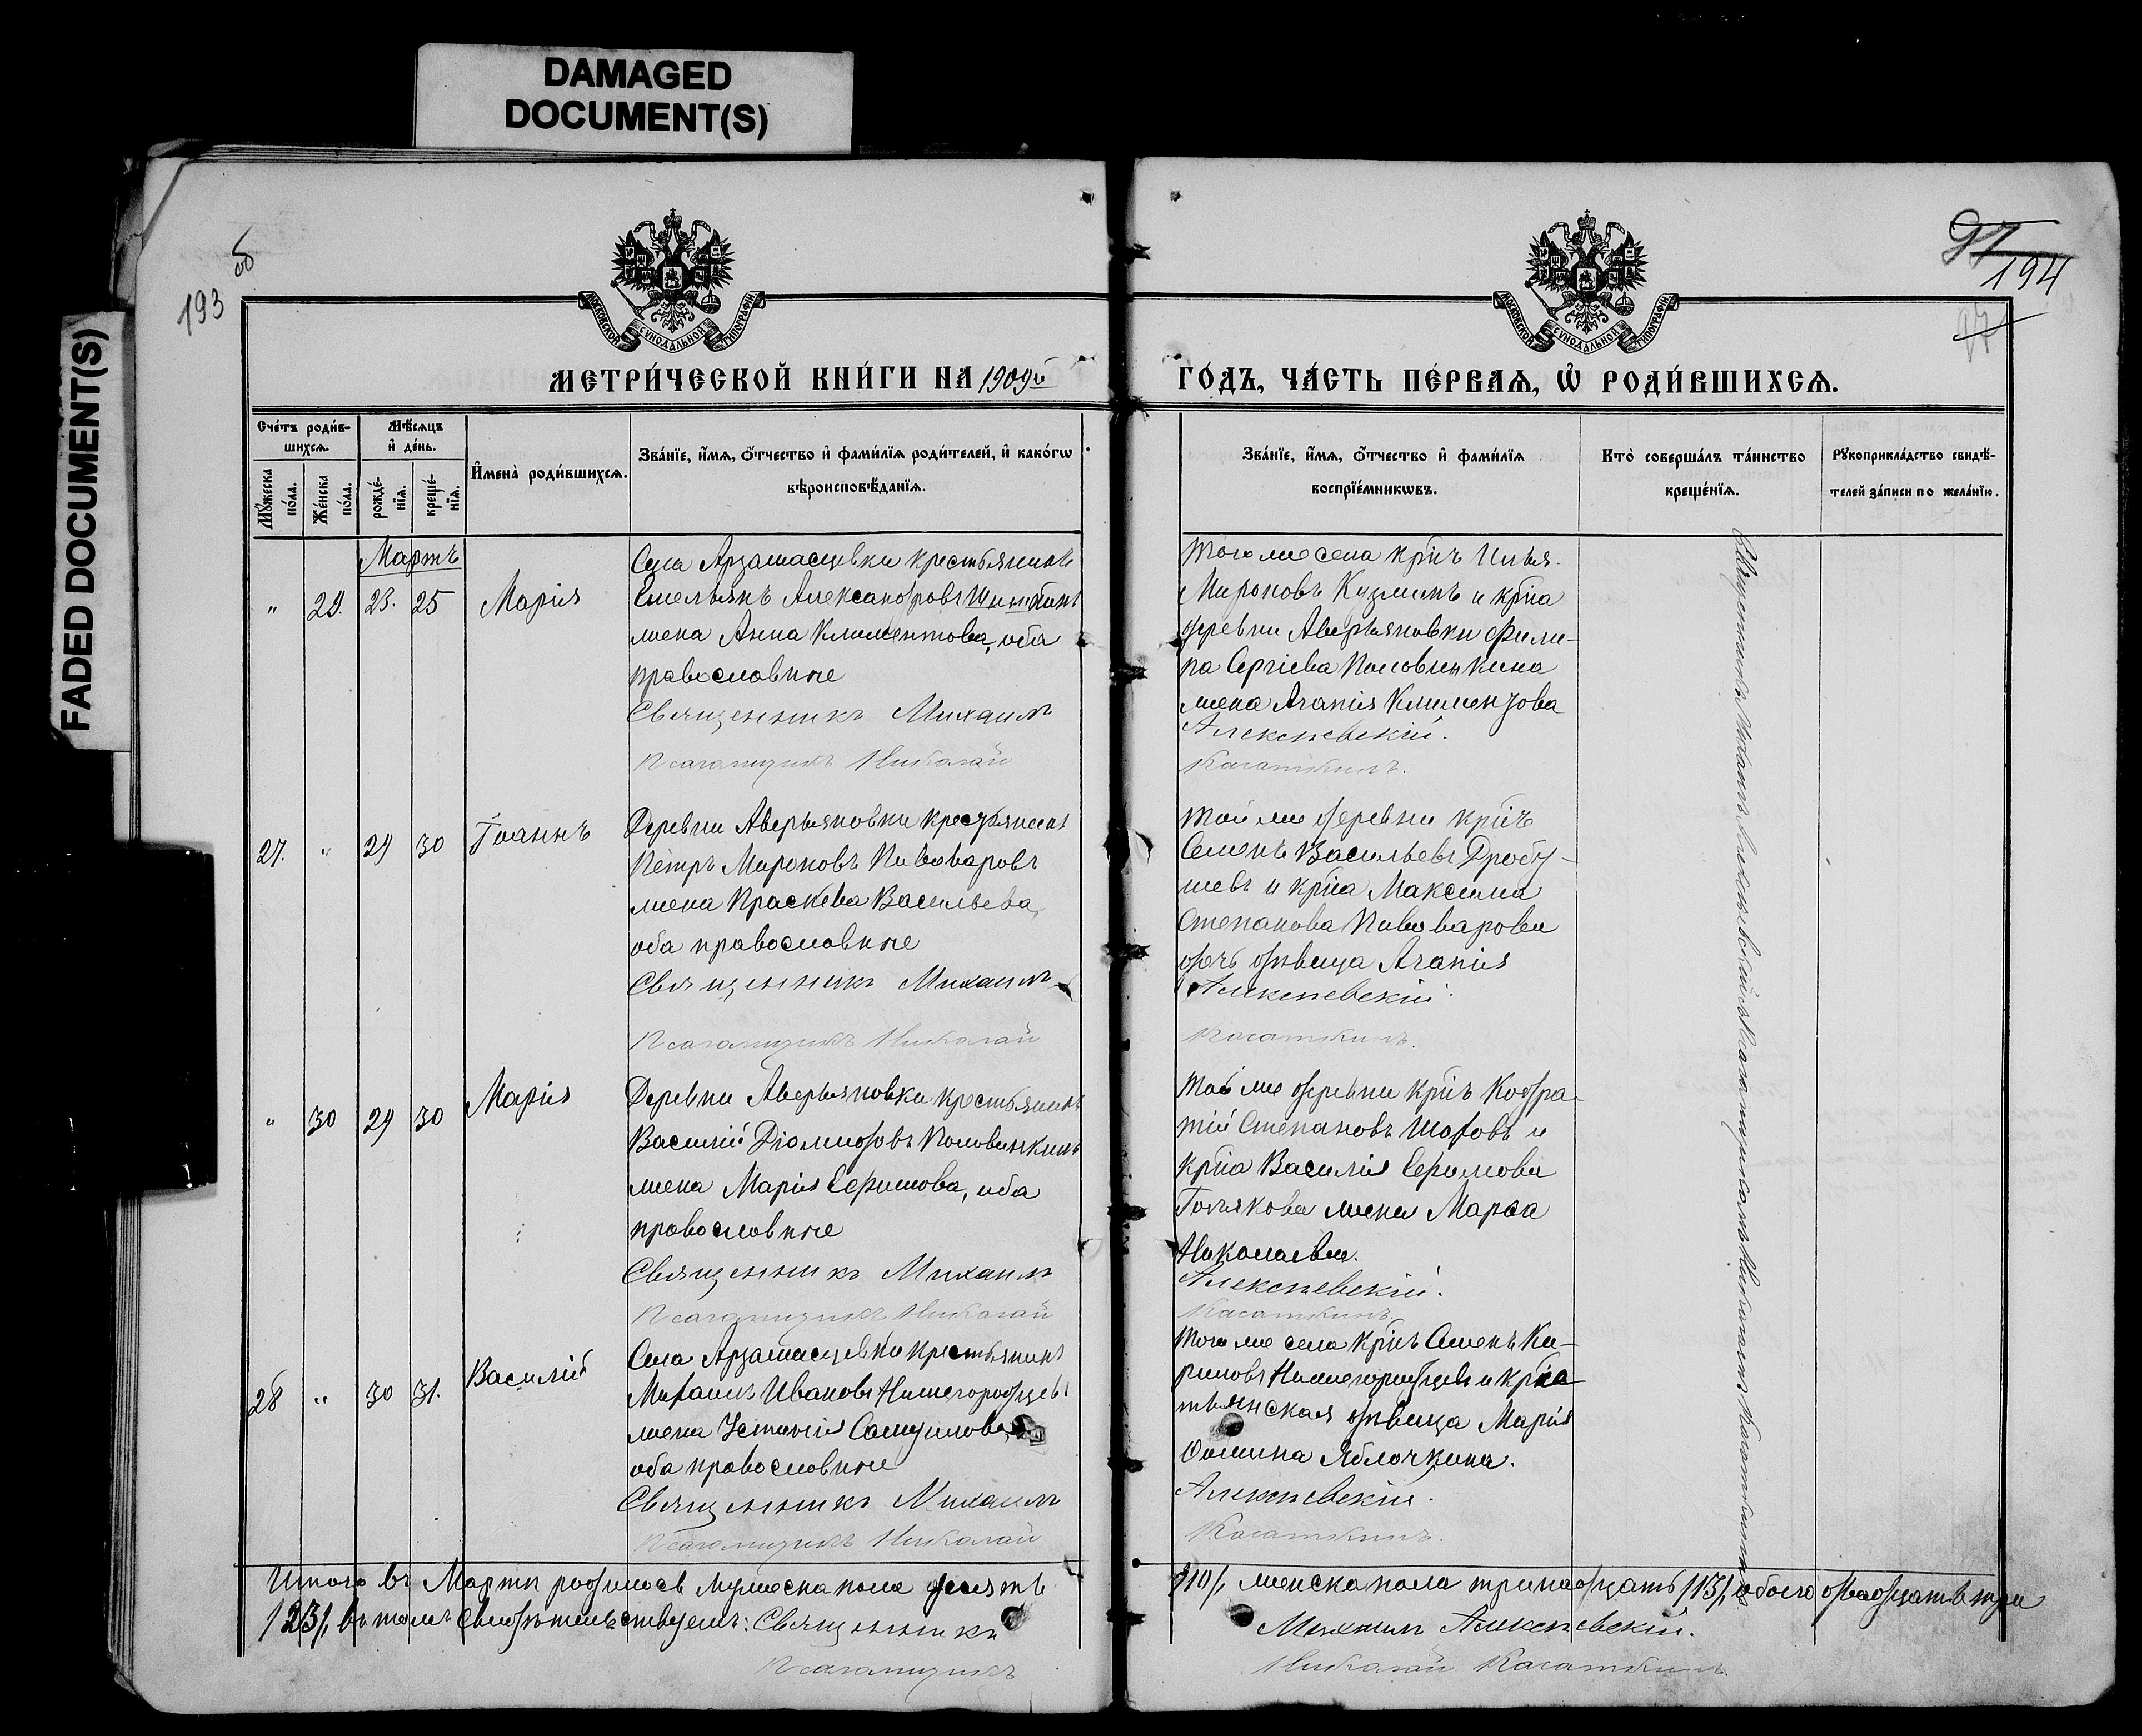 DAMAGED
DOCUMENT(S)
FADED DOCUMENT(S)
193
об
97
194
97
МОСКОВСКОЙ СѴНОДАЛЬНОЙ ТИПОГРАФІИ
МОСКОВСКОЙ СѴНОДАЛЬНОЙ ТИПОГРАФІИ
МЕТРИ́ЧЕСКОЙ КНИ́ГИ НА 1909й
ГО́ДЪ, ЧА́СТЬ ПЕ́РВАЯ, Ѡ҆ РОДИ́ВШИХСЯ.
Сче́тъ роди́в-
шихся.
Мѣ́сяцъ
и҆ де́нь.
Мꙋ́жеска
по́ла.
Же́нска
по́ла.
рожде́-
нїя.
креще́-
нїя.
И҆мена̀ роди́вшихся.
Зва́нїе, и҆́мя, ѻ҆́тчество и҆ фами́лїя роди́телей, и҆ како́гѡ
вѣроисповѣ́данїя.
Зва́нїе, и҆́мя, ѻ҆́тчество и҆ фами́лїя
воспрїе́мникѡвъ.
Кто̀ соверша́лъ та́инство
креще́нїя.
Рꙋкоприкла́дство свидѣ́-
телей за́писи по жела́нїю.
Мартъ
" 29. 23. 25 Марія
Села Арзамасцевки крестьянинъ
Емельянъ Александровъ
жена Анна Климентова, оба
православные
Священникъ Михаилъ
Псаломщикъ Николай
Того же села кр҃нъ Илья
Мироновъ Кузминъ и кр҃на
деревни Аверьяновки Фили-
па Сергіева Половинкина
жена Агапія Климентова
Алексѣевскій.
Касаткинъ.
27. " 29 30 Іоаннъ
Деревни Аверьяновки крестьянинъ
Петръ Мироновъ Пивоваровъ
жена Праскева Васильева,
оба православные
Священникъ Михаилъ
Псаломщикъ Николай
Той же деревни кр҃нъ
Семенъ Васильевъ Дробы-
шевъ и кр҃на Максима
Степанова Пивоварова
дочь дѣвица Агапія
Алексѣевскій.
Касаткинъ.
" 30 29 30 Марія
Деревни Аверьяновки крестьянинъ
Василій Діомидовъ Половинкинъ
жена Марія Ефимова, оба
православные
Священникъ Михаилъ
Псаломщикъ Николай
Той же деревни кр҃нъ Кодра-
тій Степановъ Шаховъ и
кр҃на Василія Ефимова
Голякова жена Марѳа
Николаева.
Алексѣевскій.
Касаткинъ.
28 " 30 31. Василій
Села Арзамасцевки крестьянинъ
Михаилъ Ивановъ Нижегородцевъ
жена Устинія Самуилова
оба православные
Священникъ Михаилъ
Псаломщикъ Николай
Того же села кр҃нъ Семенъ Ки-
риловъ Нижегородцевъ и крес-
тьянская дѣвица Марія
Ѳомина Яблочкина.
Алексѣевскій.
Касаткинъ.
Священникъ Михаилъ Алексѣевскій съ псаломщикомъ Николаемъ Касаткинымъ
Итого въ Мартѣ родилось мужеска пола десять
/10/, женска пола тринадцать /13/, обоего двадцать три
/23/, въ томъ свидѣтельствуемъ: Священникъ
Михаилъ Алексѣевскій.
Псаломщикъ
Николай Касаткинъ.